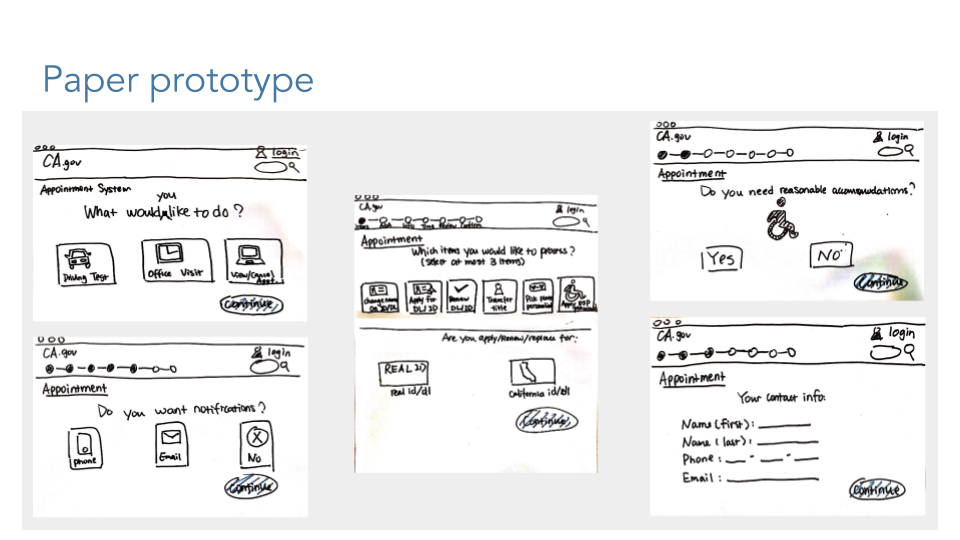 Paper prototype
CA.gov
login
Appointment System
you
What would like to do ?
Driving Test
Office Visit
View/Cancel
Appt.
Continue
CA.gov
login
Appointment
Do you want notifications ?
Phone
Email
No
Continue
CA.gov
login
Appointment
Which items you would like to process ?
(select at most 3 items)
change name
on DL/ID
Apply for
DL/ID
Renew
DL/ID
Transfer
title
Are you apply/renew/replace for:
REAL ID
real id/dl
California id/dl
Continue
CA.gov
login
Appointment
Do you need reasonable accommodations?
Yes
No
Continue
CA.gov
login
Appointment
Your contact info:
Name (first):
Name (last):
Phone : - -
Email :
Continue